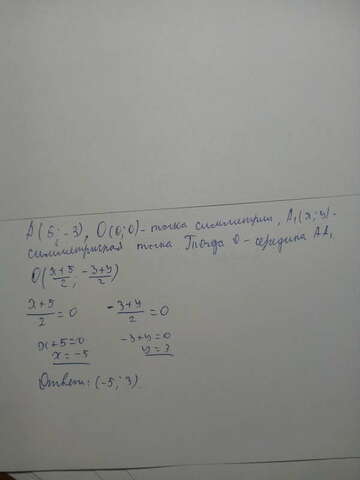 A(5; -3), O(0; 0) - точка симметрии, A₁(x; y) -
симметричная точка. Тогда O - середина AA₁
O((x+5)/2; (-3+y)/2)
(x+5)/2 = 0 (-3+y)/2 = 0
x+5=0 -3+y=0
x=-5 y=3
Ответ: (-5; 3)